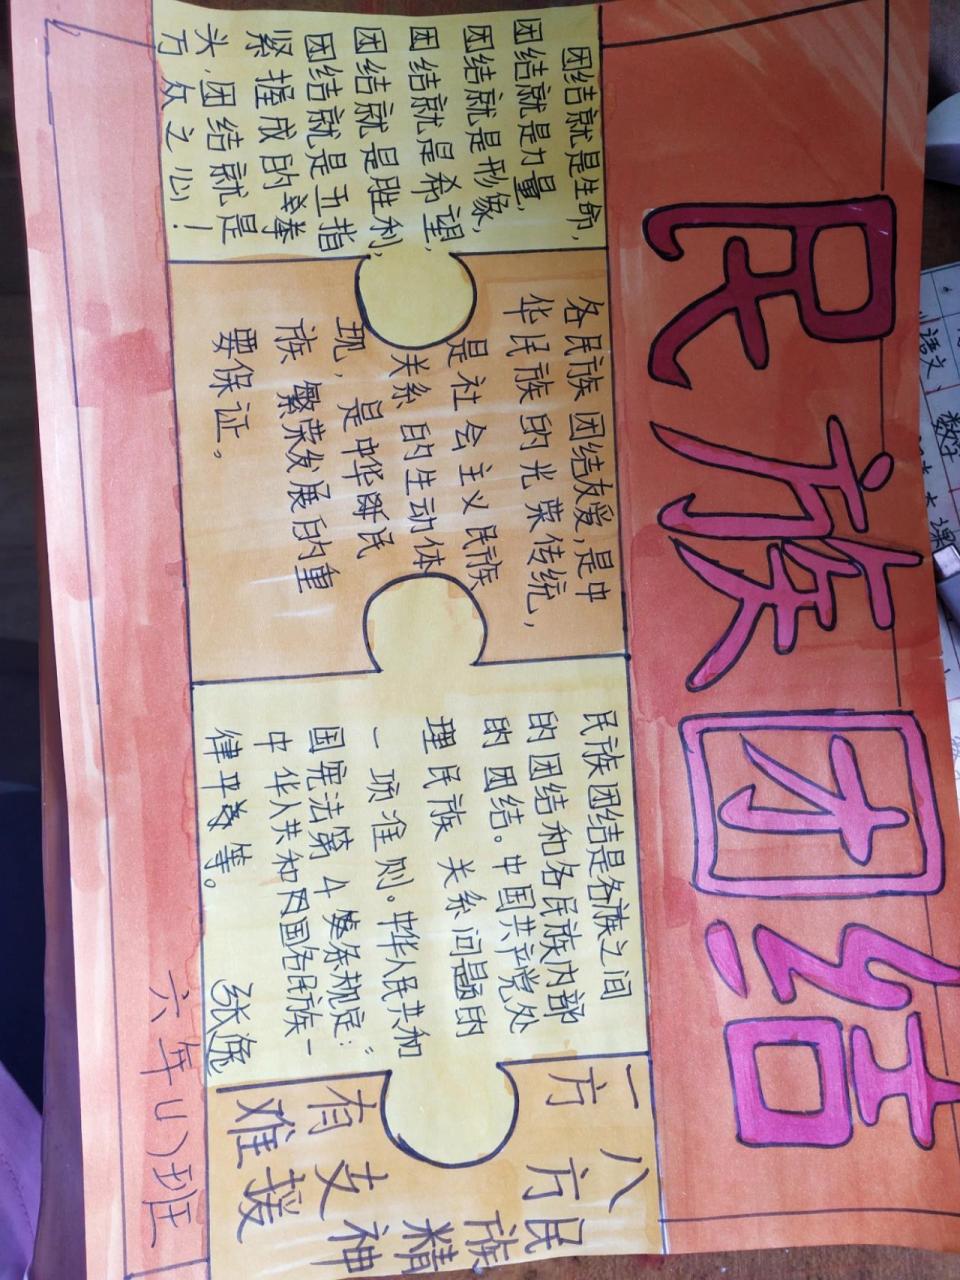 民族团结
团结就是生命,
团结就是力量,
团结就是形像,
团结就是希望,
团结就是胜利,
团结就是五指
紧握成的拳
头,团结就是
万众之心!
各民族团结友爱,是中
华民族的光荣传统,
是社会主义民族
关系的生动体
现,是中华民
族繁荣发展的重
要保证。
民族团结是各族之间
的团结和各民族内部
的团结。中国共产党处
理民族关系问题的
一项准则。中华人民共和
国宪法第4条规定:“
中华人共和国各民族一
律平等。
一八
方方民
族
有支精
难援神
六年(1)班
语文
数学